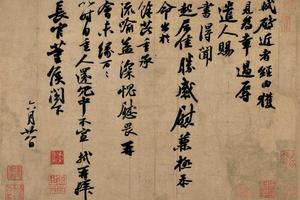 軾啟近者經由獲
見為幸過辱
遣人賜
書得聞
起居佳勝感慰兼極忝
命出於
餘芘重承
流喻益深愧畏再
會未緣萬萬
以時自重人還冗中不宣軾再拜
長官董侯閣下
六月廿八日